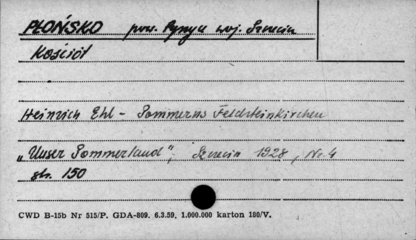 PŁOŃSKO pow. Pyrzyce woj. Szczecin
Kościół
Heinrich Ehl - Pommerns Feldsteinkirchen
„Unser Pommerland", Szczecin 1928, Nr. 4
str. 150
CWD B-15b Nr 515/P. GDA-809. 6.3.59. 1.000.000 karton 180/V.